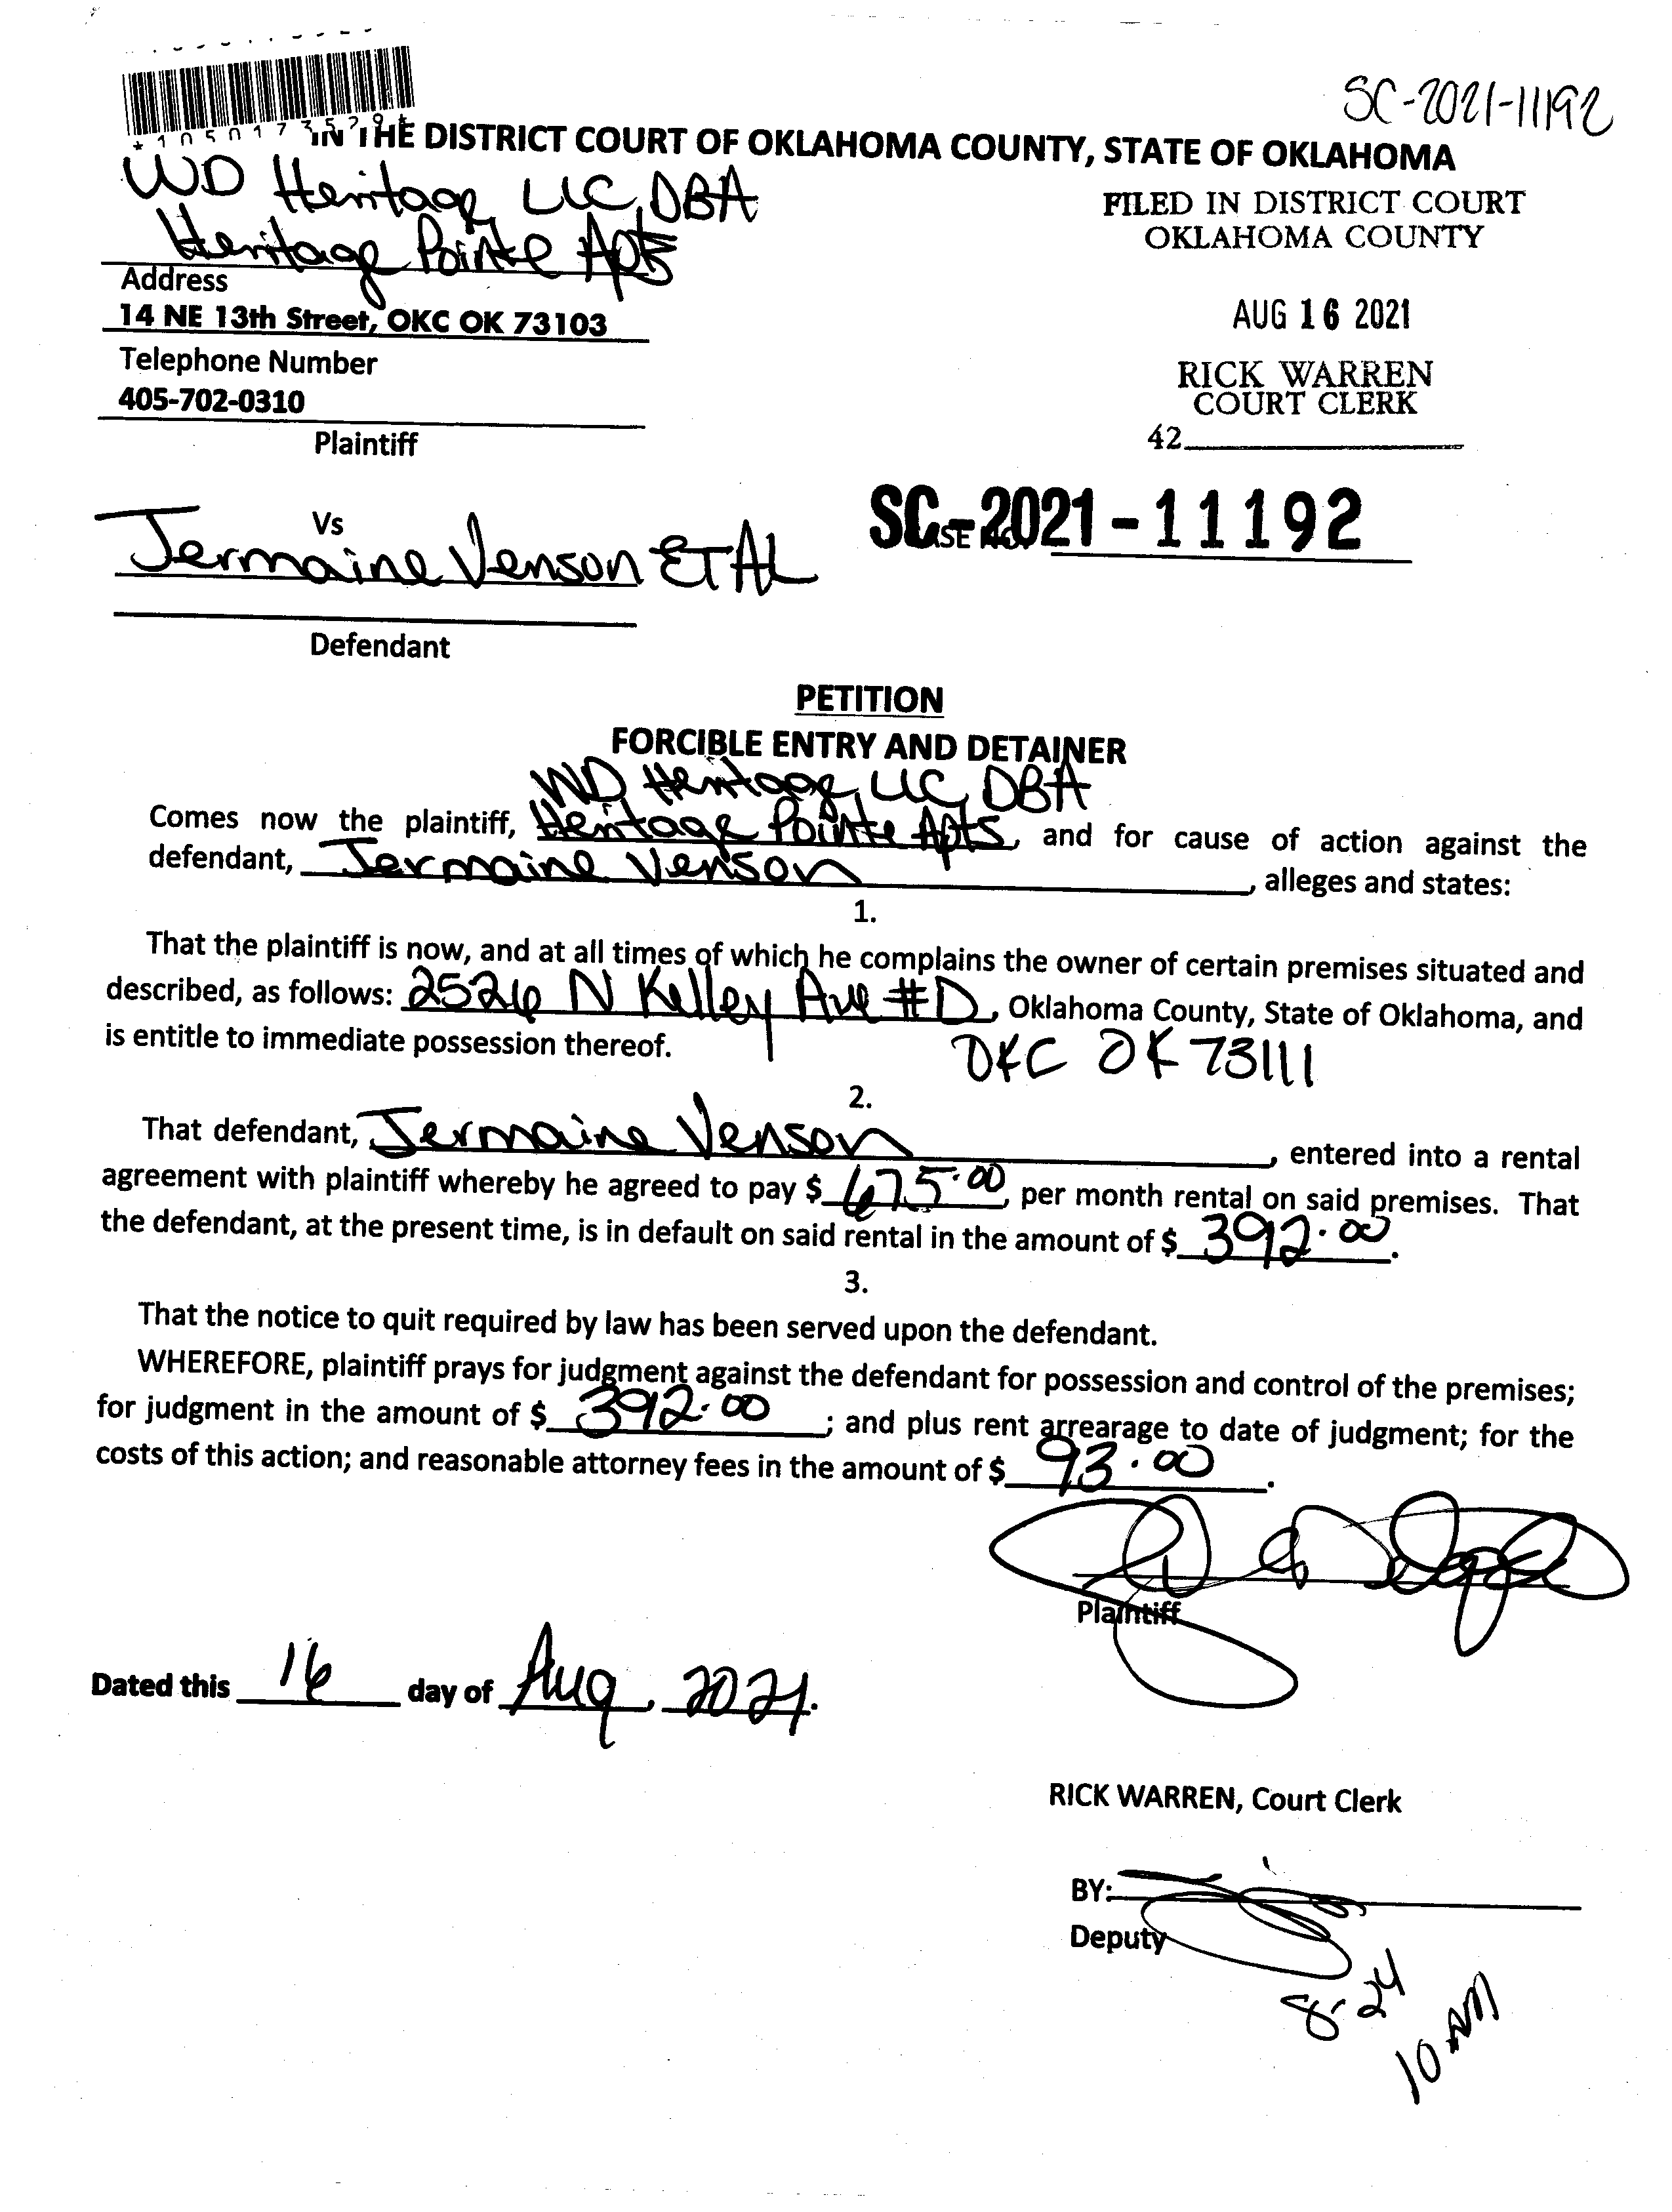 SC-2021-11192
IN THE DISTRICT COURT OF OKLAHOMA COUNTY, STATE OF OKLAHOMA
WD Heritage, LLC, DBA
Heritage Pointe Apts
Address
14 NE 13th Street, OKC OK 73103
Telephone Number
405-702-0310
Plaintiff
FILED IN DISTRICT COURT
OKLAHOMA COUNTY
AUG 16 2021
RICK WARREN
COURT CLERK
42
SC-2021-11192
Vs
Jermaine Venson ET AL
Defendant
PETITION
FORCIBLE ENTRY AND DETAINER
WD Heritage, LLC, DBA
Comes now the plaintiff, Heritage Pointe Apts, and for cause of action against the
defendant, Jermaine Venson, alleges and states:
1.
That the plaintiff is now, and at all times of which he complains the owner of certain premises situated and
described, as follows: 2526 N Kelley Ave #D, Oklahoma County, State of Oklahoma, and
is entitle to immediate possession thereof. OKC OK 73111
2.
That defendant, Jermaine Venson, entered into a rental
agreement with plaintiff whereby he agreed to pay $ 675.00, per month rental on said premises. That
the defendant, at the present time, is in default on said rental in the amount of $ 392.00.
3.
That the notice to quit required by law has been served upon the defendant.
WHEREFORE, plaintiff prays for judgment against the defendant for possession and control of the premises;
for judgment in the amount of $ 392.00; and plus rent arrearage to date of judgment; for the
costs of this action; and reasonable attorney fees in the amount of $ 93.00.
Plaintiff
Dated this 16 day of Aug, 2021.
RICK WARREN, Court Clerk
BY:
Deputy
8-24
10 AM